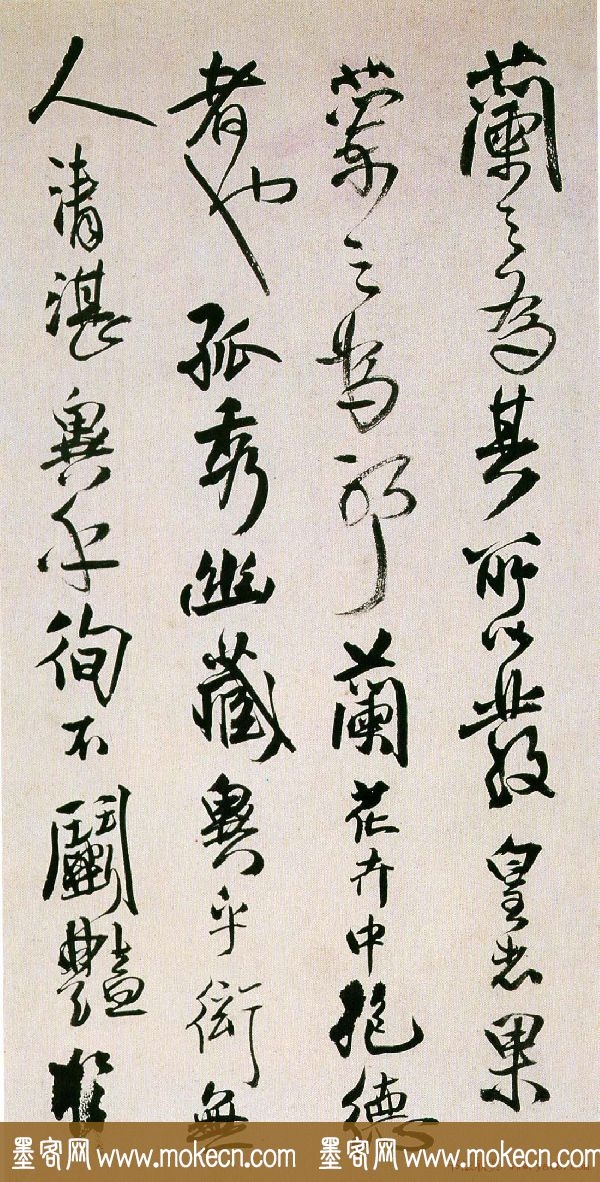 蘭之為其所以發皇果
蘭之耶蘭花卉中抱德
者也孤秀幽藏異乎衒無
人清湛異乎徇不鬭艷
墨客网 www.mokecn.com 墨客网 www.mokecn.com